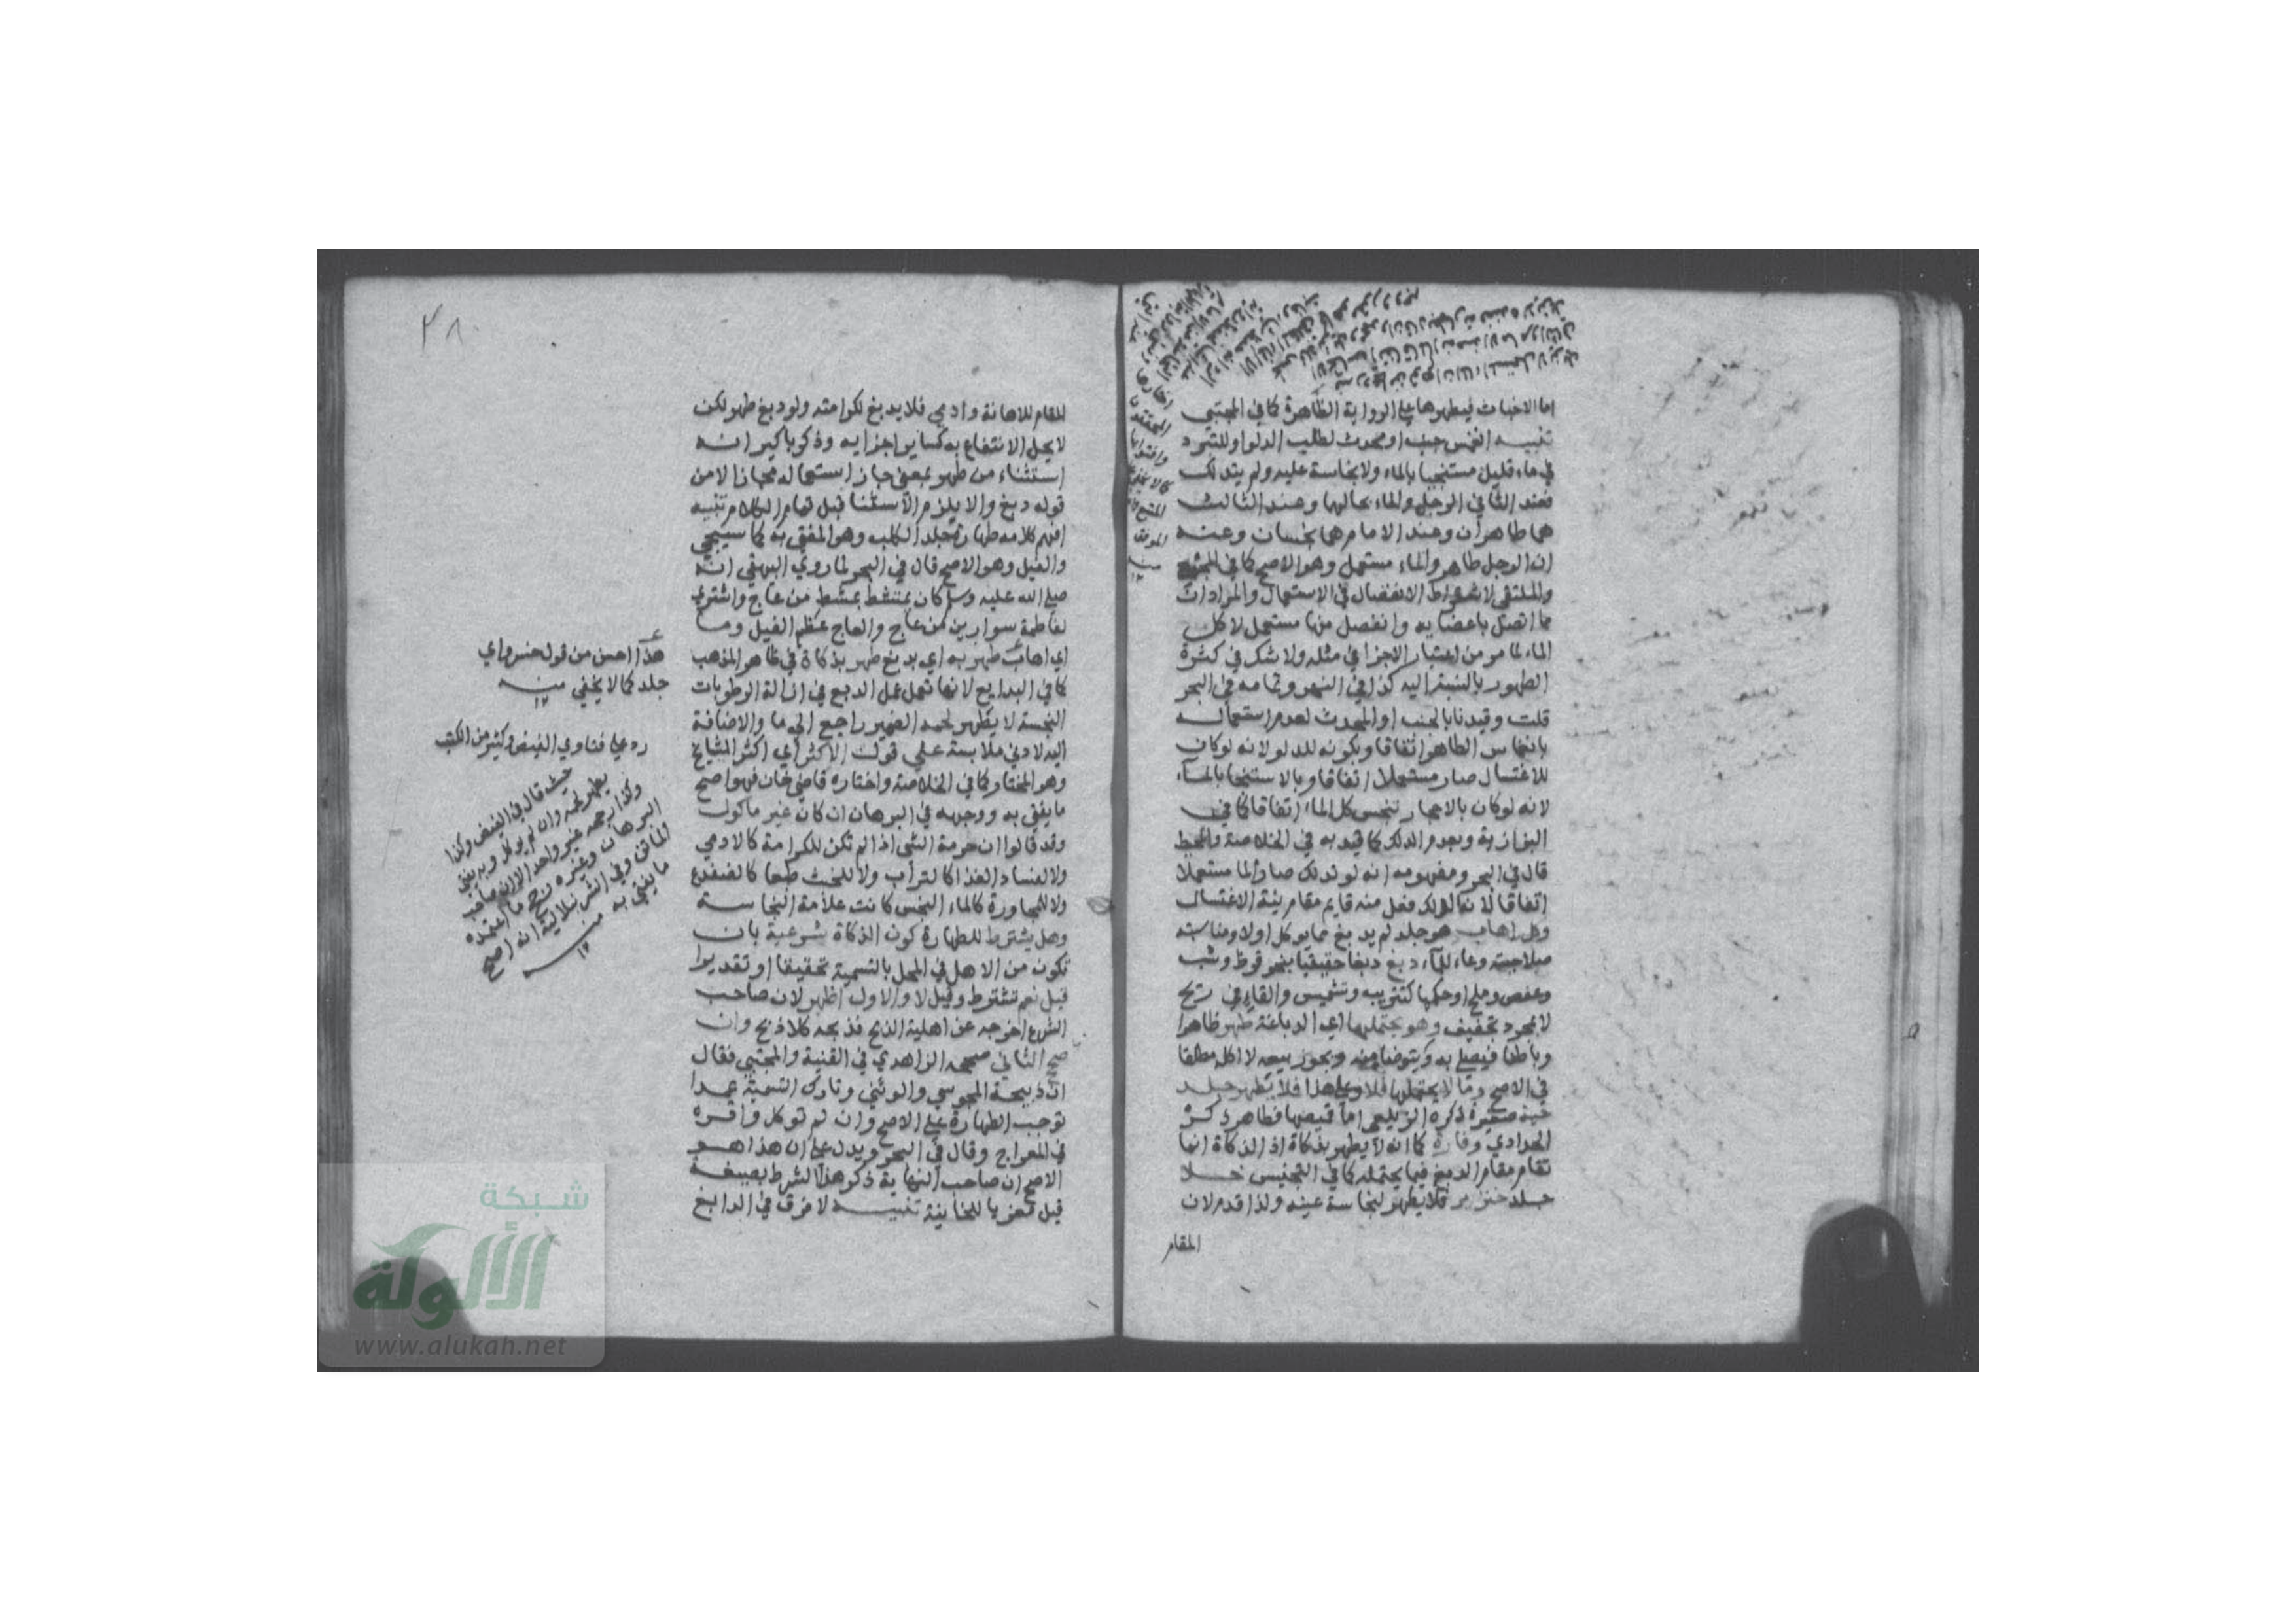 اما الاخباث فيطهرها على الرواية الظاهرة كما في المجتبى
تنبيه انغمس جنب او محدث لطلب الدلو او للتبرد
في ماء قليل مستنجيا بالماء ولا نجاسة عليه ولم يتدلك
فعند الثاني الرجل والماء بحالهما وعند الثالث
هما طاهران وعند الامام هما نجسان وعنه
ان الرجل طاهر والماء مستعمل وهو الاصح كما في
والملتقى لاشتراط الانفصال في الاستعمال والمراد ان
ما اتصل باعضايه وانفصل منها مستعمل لا كل
الماء لما مر من اعتبار الاجزا في مثله ولا شك في كثرة
الطهور بالنسبة اليه كذا في النهر وتمامه في البحر
قلت وقيدنا بالجنب او المحدث لعدم استعماله
بانغماس الطاهر اتفاقا وبكونه للدلو لانه لو كان
للاغتسال صار مستعملا اتفاقا وبالاستنجا بالماء
لانه لو كان بالاحجار تنجس كل الماء اتفاقا كما في
البزازية وبعدم الدلك كما قيد به في الخلاصة والمحيط
قال في البحر ومفهومه انه لو تدلك صار الما مستعملا
اتفاقا لانه الدلك فعل منه قايم مقام نية الاغتسال
وكل اهاب هو جلد لم يدبغ مما يوكل اولا ومناسبته
صلاحيته وعاء للماء دبغ دبغا حقيقيا بنحو قرظ وشب
وعفص وملح او حكميا كتتريب وتشميس والقاء في ريح
لا مجرد تجفيف وهو يحتملها اي الدباغة طهر ظاهرا
وباطنا فيصلى به ويتوضا منه ويجوز بيعه لا اكله مطلقا
في الاصح وما لا يحتملها فلا وعلى هذا فلا يطهر جلد
حية صغيرة ذكره الزيلعي اما قميصها فطاهر ذكره
الحدادي وفارة كما انه لا يطهر بذكاة اذ الذكاة انما
تقام مقام الدبغ فيما يحتمله كما في التجنيس خلا
جلد خنزير فلا يطهر لنجاسة عينه ولذا قدم لان
المقام
٣٨
المقام للاهانة وادمي فلا يدبغ لكرامته ولو دبغ طهر لكن
لا يحل الانتفاع به كساير اجزايه وذكر باكير انه
استثناء من طهر بمعنى جاز استعماله مجازا لا من
قوله دبغ والا يلزم الاستثنا قبل تمام الكلام تنبيه
افهم كلامه طهارة جلد الكلب وهو المفتى به كما سيجي
والفيل وهو الاصح قال في البحر لما روى البيهقي انه
صلى الله عليه وسلم كان يمتشط بمشط من عاج واشترى
لفاطمة سوارين من عاج والعاج عظم الفيل وما
اي اهاب طهر به اي بدبغ طهر بذكاة في ظاهر المذهب
كما في البدايع لانها تعمل عمل الدبع في ازالة الرطوبات
النجسة لا يطهر لحمه الضمير راجع الى ما والاضافة
اليه لادنى ملابسة على قول الاكثر اي اكثر المشايخ
وهو المختار كما في الخلاصة واختاره قاضي خان فهو اصح
ما يفتى به ووجهه في البرهان ان كان غير ماكول
وقد قالوا ان حرمة الشي اذا لم تكن للكرامة كالادمي
ولا لفساد الغذا كالتراب ولا للخبث طبعا كالضفدع
ولا للمجاورة كالماء النجس كانت علامة النجاسة
وهل يشترط للطهارة كون الذكاة شرعية بان
تكون من الاهل في المحل بالتسمية تحقيقا او تقديرا
قيل نعم تشترط وقيل لا والاول اظهر لان صاحب
الشرع اخرجه عن اهلية الذبح فذبحه كلا ذبح وان
صح الثاني صححه الزاهدي في القنية والمجتبى فقال
ان ذبيحة المجوسي والوثني وتارك التسمية عمدا
توجب الطهارة على الاصح وان لم توكل واقره
في المعراج وقال في البحر ويدل على ان هذا هو
الاصح ان صاحب النهاية ذكر هذا الشرط بصيغة
قيل معزيا للخانية تنبيه لا فرق في الدابغ
هذا احسن من قول خسرو اي
جلد كما لا يخفى منه
رد على فتاوي الفيض وكثير من الكتب
حيث قال في الفيض وكذا
يطهر لحمه وان لم يوكل وبه يفتى
وكذا رجحه غير واحد الا ان صاحب
البرهان وغيره رجح ما اعتمده
الماتن وفي الشرنبلالية انه اصح
ما يفتى به منه
شبكة
الألوكة
www.alukah.net